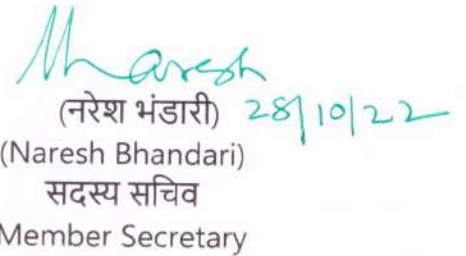 Naresh
(नरेश भंडारी) 28/10/22
(Naresh Bhandari)
सदस्य सचिव
Member Secretary